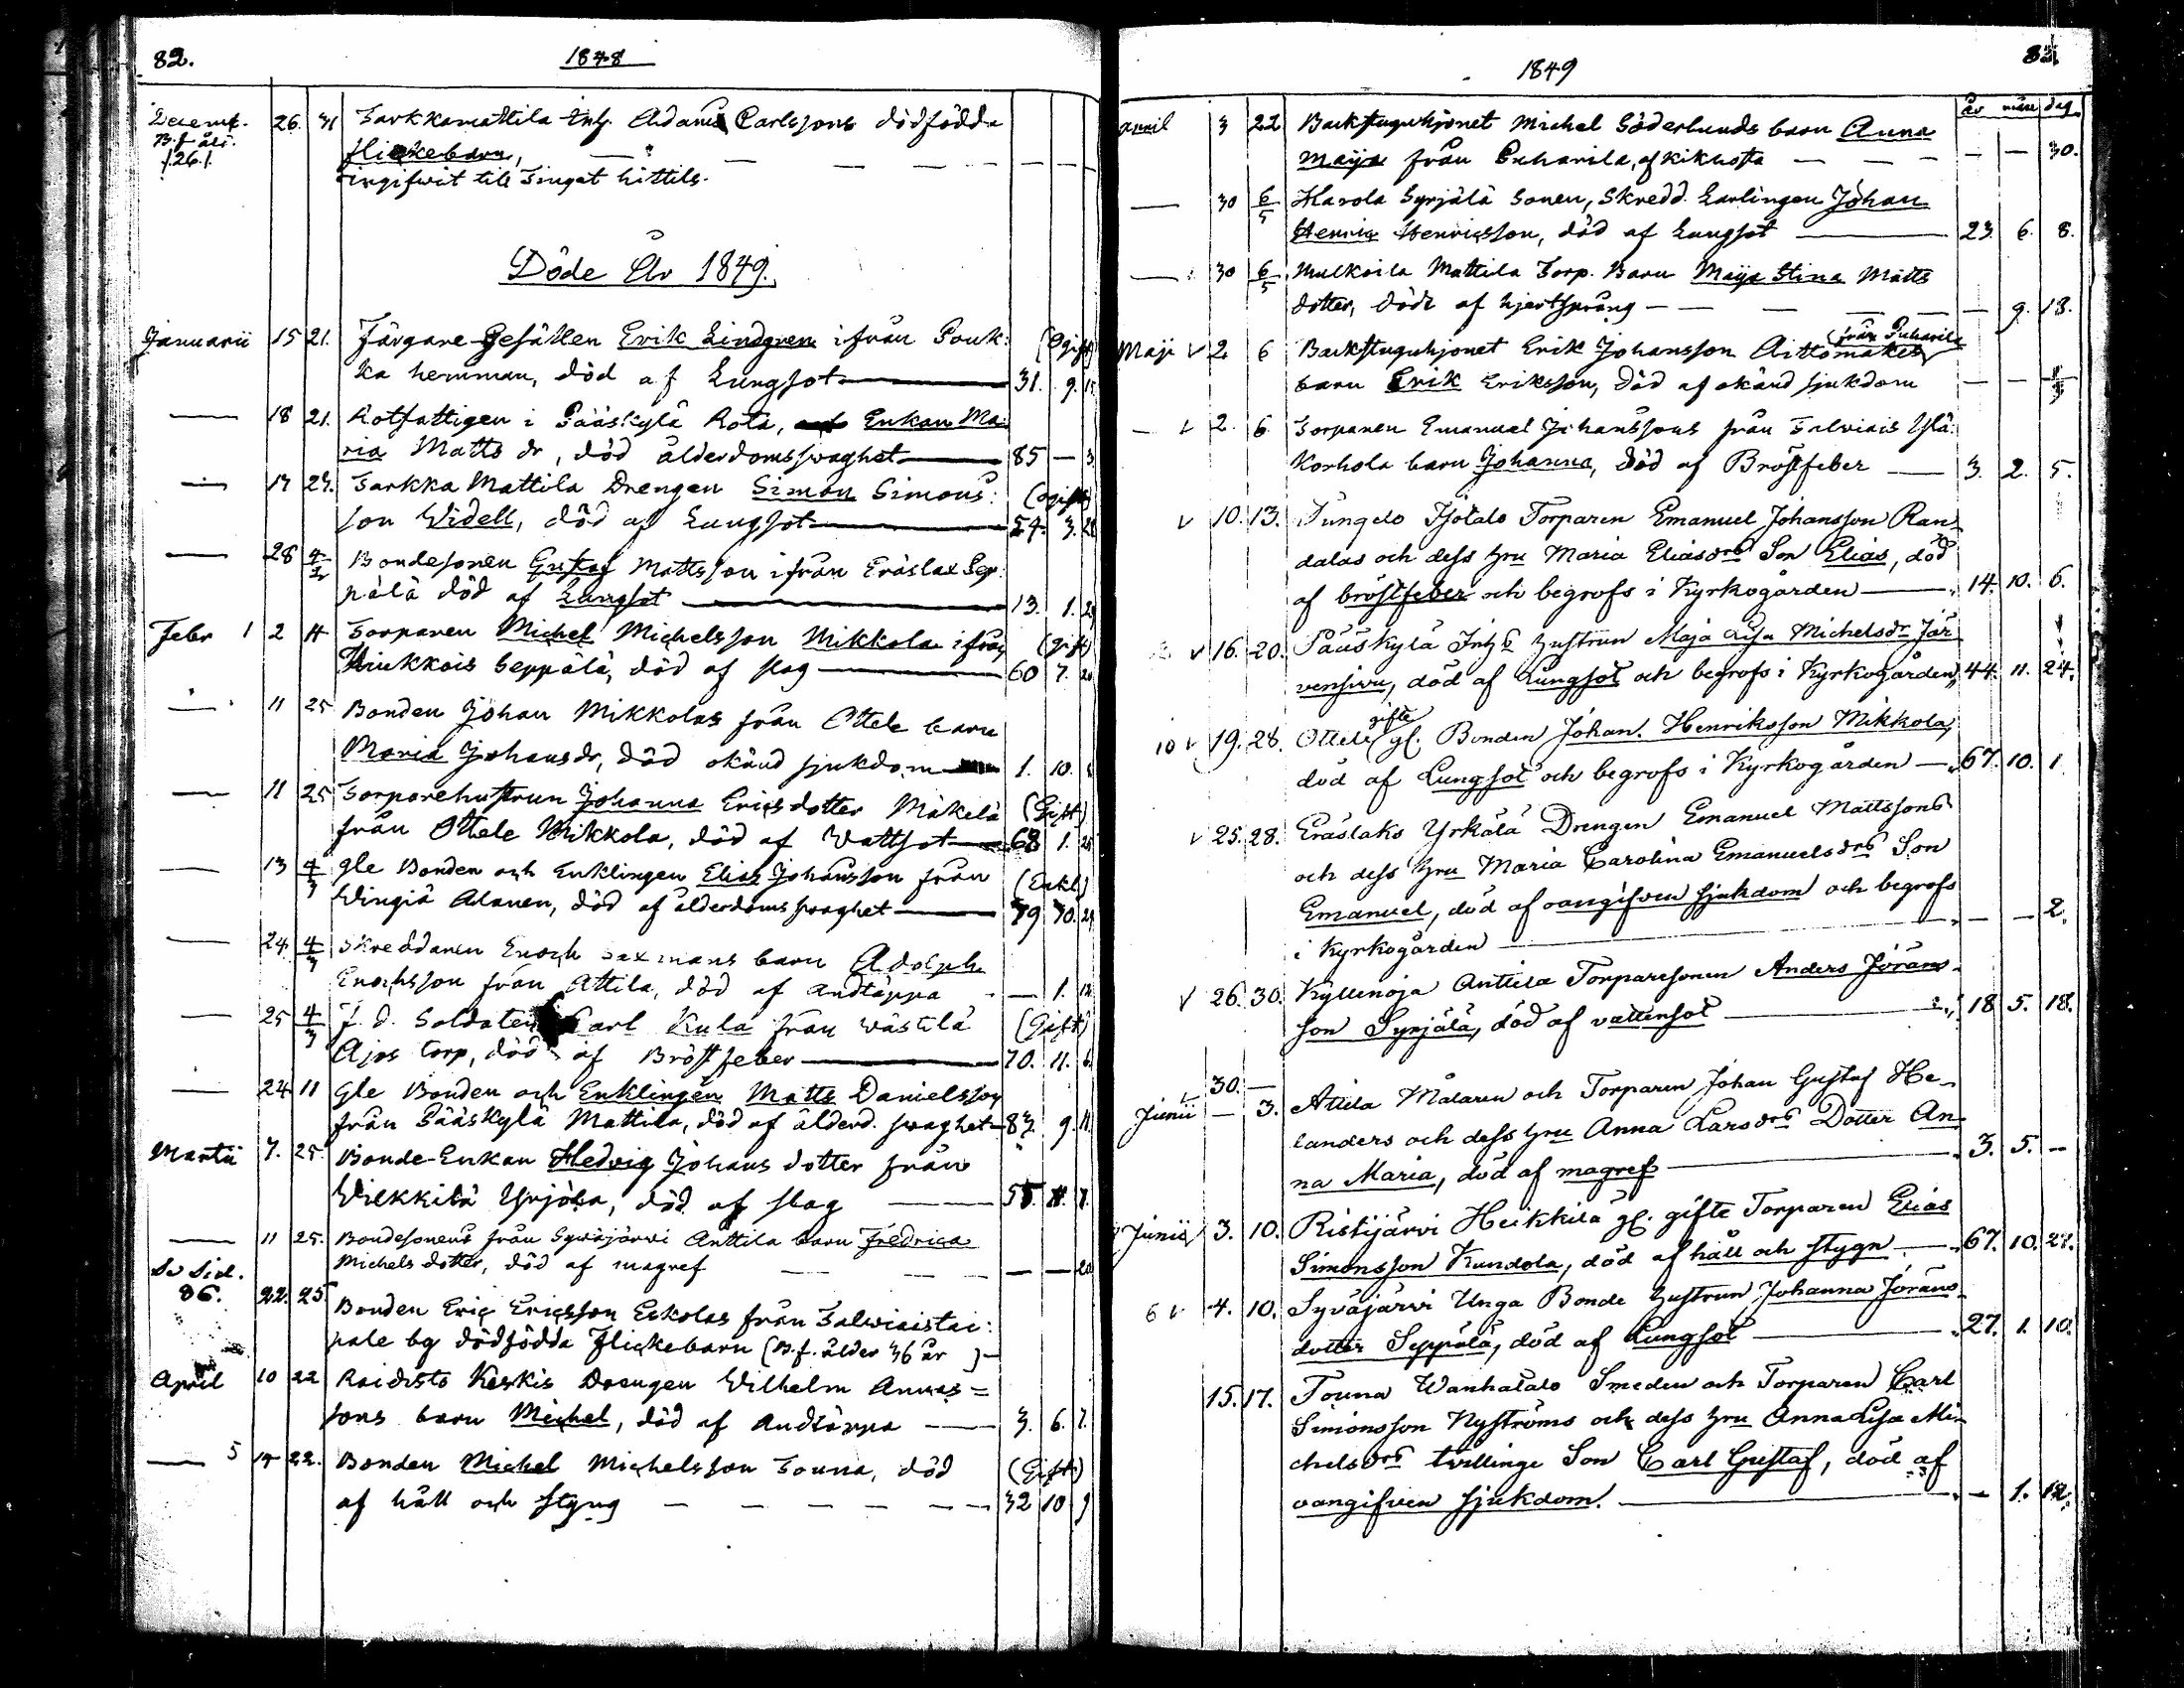 82.
1848
Decemb. 26. 31 Sarkkamattila Inh. Adams Carlssons dödfödda
B. f. åld. flickebarn, — — — — —
/26./ ingifwit till Finget hittils.
Döde År 1849.
Januarii 15 21. Färgare-Gesällen Erik Lindgren ifrån Pouk: (Ogift)
ka hemman, död af Lungsot — 31. 9. 15
— 18 21. Rotfattigen i Pääskylä Rota, Enkan Ma:
ria Matts dr, död ålderdomsswaghet — 85 — 3
— 17 27. Sarkka Mattila Drengen Simon Simons: (ogift)
son Widell, död af Lungsot — 54. 3. 28
— 28 4/2 Bondesonen Gustaf Mattsson ifrån Eräslax Sep:
pälä död af Lungsot — 13. 1. 29
Febr 1 2 11 Torparen Michel Michelsson Mikkola ifrån (gift)
Kiukkois Seppälä, död af slag — 60 7. 20
— 11 25 Bonden Johan Mikkolas från Ottele barn
Maria Johansdr, död okänd sjukdom 1. 10.
— 11 25 Torparehustrun Johanna Ericsdotter Mäkelä (Gift)
från Ottele Mikkola, död af Wattsot — 68 1. 25
— 13 4/3 gle Bonden och Enklingen Elias Johansson från (Enkl)
Wingiä Alanen, död af ålderdoms swaghet — 79 10. 29
— 24. 4/3 Skreddaren Enoch Saxmans barn Adolph
Enochsson från Attila, död af andtäppa — 1. 12
— 25 4/3 f. d. Soldaten Carl Kula från Wästilä (Gift)
Ajos torp, död af Bröstfeber — 70. 11. 6
— 24 11 Gle Bonden och Enklingen Matts Danielsson
från Pääskylä Mattila, död af ålderd. swaghet — 87. 9. 11.
Martii 7. 25. Bonde-Enkan Hedvig Johans dotter från
Wilkkilä Yrjölä, död af slag — 55. 11. 7.
— 11 25. Bondesonens från Sywäjärwi Anttila barn Fredrica
Michels dotter, död af magref — — — — — 20
Se Sid.
86. 22. 25. Bonden Eric Ericsson Eskolas från Salwiaistai:
pale by dödfödda flickebarn (B. f. ålder 36 år) —
April 10 22 Raidisto Keskis Drengen Wilhelm Annas=
sons barn Michel, död af andtäppa — 3. 6. 7.
— 5 14 22. Bonden Michel Michelsson Touna, död (Gift)
af håll och styng — — — — — — 32 10 9
1849
83.
år mån dag
April 3 22 Backstuguhjonet Michel Söderlunds barn Anna
Maija från Puharila, af kikhosta — — — — — 30.
— 30 6/5 Harola Syrjälä Sonen, Skredd. Lärlingen Johan
Henric Henricsson, död af Lungsot — 23. 6. 8.
— 30 6/5 Mulkoila Mattila Torp. Barn Maija Stina Matts
dotter, död af hjertsprång — — — — — 9. 18.
från Puharila
Maji v 2 6 Backstuguhjonet Erik Johansson Aittomäkes
barn Erik Eriksson, död af okänd sjukdom — —
— v 2. 6. Torparen Emanuel Johanssons från Salwiais Ylä
Korhola barn Johanna, död af Bröstfeber — 3. 2. 5.
v 10. 13. Tungelo Isotalo Torparen Emanuel Johansson Ran
dalas och dess hru Maria Eliasdrs Son Elias, död
af bröstfeber och begrofs i Kyrkogården — 14. 10. 6.
v 16. 20. Pääskylä Inhs hustrun Maja Lisa Michelsdr Jär
vensivu, död af Lungsot och begrofs i Kyrkogården, 44. 11. 24.
gifte
10 v 19. 28. Ottele gl. Bonden Johan Henriksson Mikkola,
död af Lungsot och begrofs i Kyrkogården — 67. 10. 1.
v 25. 28. Eräslaks Yrkälä Drengen Emanuel Mattssons
och dess hru Maria Carolina Emanuelsdrs Son
Emanuel, död af oangifven sjukdom och begrofs
i Kyrkogården — — — 2.
v 26. 30. Kyllinoja Anttila Torparesonen Anders Jörans
son Syrjälä, död af vattensot — 18 5. 18.
30. —
Junii — 3. Attila Målaren och Torparen Johan Gustaf He-
landers och dess hru Anna Larsdrs Dotter An-
na Maria, död af magref — 3. 5. —
Junii 3. 10. Ristijärvi Heikkilä gl. gifte Torparen Elias
Simonsson Kundola, död af håll och stygn — 67. 10. 27.
6 v 4. 10. Syväjärvi Unga Bonde hustrun Johanna Jörans
dotter Seppälä, död af Lungsot — 27. 1. 10.
15. 17. Touna Wanhatalo Smeden och Torparen Carl
Simonsson Nyströms och dess hru Anna Lisa Mi-
chelsdrs tvillinge Son Carl Gustaf, död af
oangifven sjukdom. — — 1. 12.